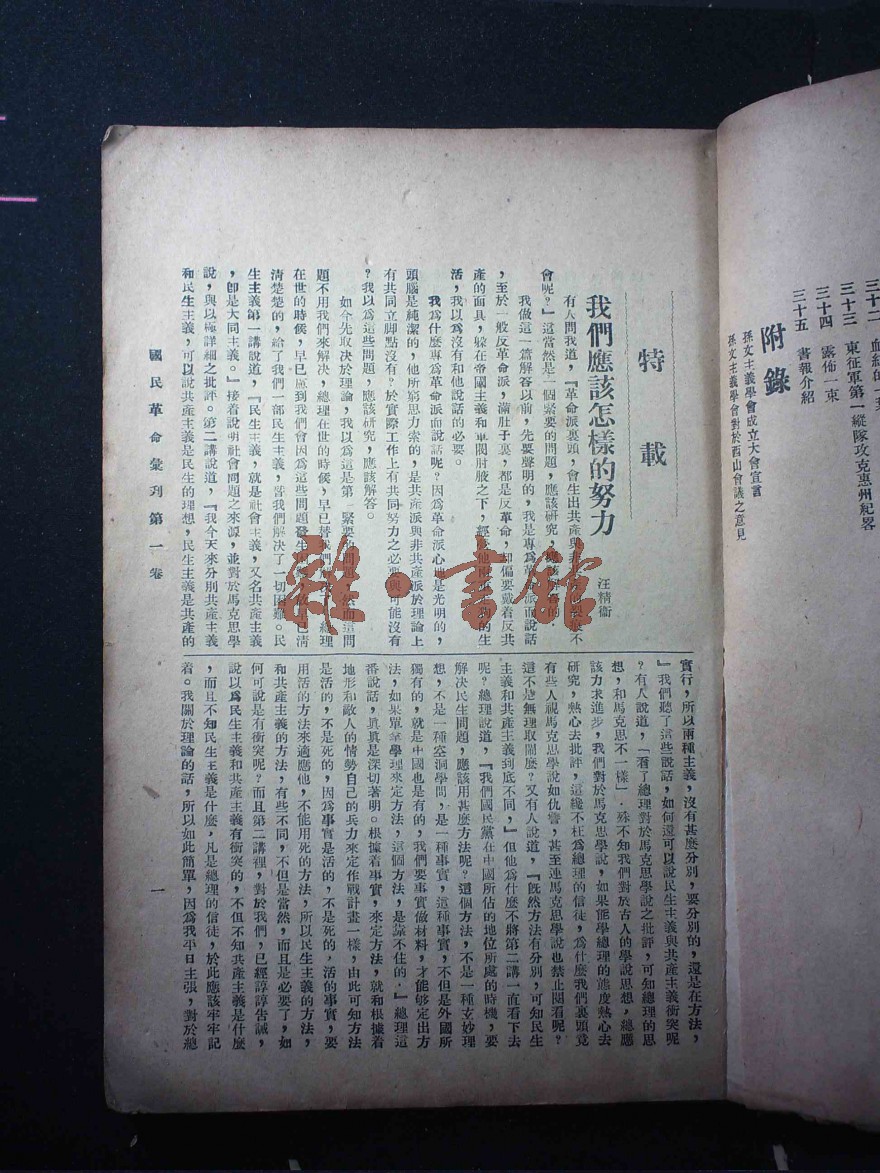 三十二
三十三 東征軍第一縱隊攻克惠州紀畧
三十四 露佈一束
三十五 書報介紹
附錄
孫文主義學會成立大會宣言
孫文主義學會對於西山會議之意見
特載
我們應該怎樣的努力
汪精衞
有人問我道，『革命派裏頭，會生出共產與
會呢？』這當然是一個緊要的問題，應該研究，
我做這一篇解答以前，先要聲明的，我是專爲革命派而說話
，至於一般反革命派，滿肚子裏，都是反革命，却偏要戴着反共
產的面具，躲在帝國主義和軍閥肘腋之下，
活，我以爲沒有和他說話的必要。
我爲什麼專爲革命派而說話呢？因爲革命派心地是光明的，
頭腦是純潔的，他所窮思力索的，是共產派與非共產派於理論上
有共同立脚點沒有？於實際工作上有共同努力之必要與可能沒有
？我以爲這些問題，應該研究，應該解答。
如今先取決於理論，我以爲這是第一緊要的問題，然而這問
題不用我們來解決，總理在世的時候，早已替我們解決了，總理
在世的時候，早已慮到我們會因爲這些問題發生
清楚楚的，給了我們一部民生主義，替我們解決了一切困難。民
生主義第一講說道，『民生主義，就是社會主義，又名共產主義
，卽是大同主義。』接着說明社會問題之來源，並對於馬克思學
說，與以極詳細之批評。第二講說道，『我今天來分別共產主義
和民生主義，可以說共產主義是民生的理想，民生主義是共產的
實行，所以兩種主義，沒有甚麼分別，要分別的，還是在方法，
』我們聽了這些說話，如何還可以說民生主義與共產主義衝突呢
？有人說道，『看了總理對於馬克思學說之批評，可知總理的思
想，和馬克思不一樣』．殊不知我們對於古人的學說思想，總應
該力求進步，我們對於馬克思學說，如果能學總理的態度熱心去
研究，熱心去批評，這纔不枉爲總理的信徒，爲什麼我們裏頭竟
有些人視馬克思學說如仇讐，甚至連馬克思學說也禁止閱看呢？
這不是無理取鬧麼？又有人說道，『旣然方法有分別，可知民生
主義和共產主義到底不同，』但他爲什麼不將第二講一直看下去
呢？總理說道，『我們國民黨在中國所佔的地位所處的時機，要
解決民生問題，應該用甚麼方法呢？這個方法，不是一種玄妙理
想，不是一種空洞學問，是一種事實，這種事實，不但是外國所
獨有的，就是中國也是有的，我們要事實做材料，才能够定出方
法，如果單拿學理來定方法，這個方法，是靠不住的．』總理這
番說話，眞眞是深切著明。根據着事實，來定方法，就和根據着
地形和敵人的情勢自己的兵力來定作戰計畫一樣，由此可知方法
是活的，不是死的，因爲事實是活的，不是死的，活的事實，要
用活的方法來適應他，不能用死的方法，所以民生主義的方法，
和共產主義的方法，有些不同，不但是當然，而且是必要了，如
何可說是有衝突呢？而且第二講裡，對於我們，已經諄諄告誡，
說以爲民生主義和共產主義有衝突的，不但不知共產主義是什麼
，而且不知民生主義是什麼，凡是總理的信徒，於此應該牢牢記
着。我關於理論的話，所以如此簡單，因爲我平日主張，對於總
國民革命彙刋第一卷
一
雜·書館